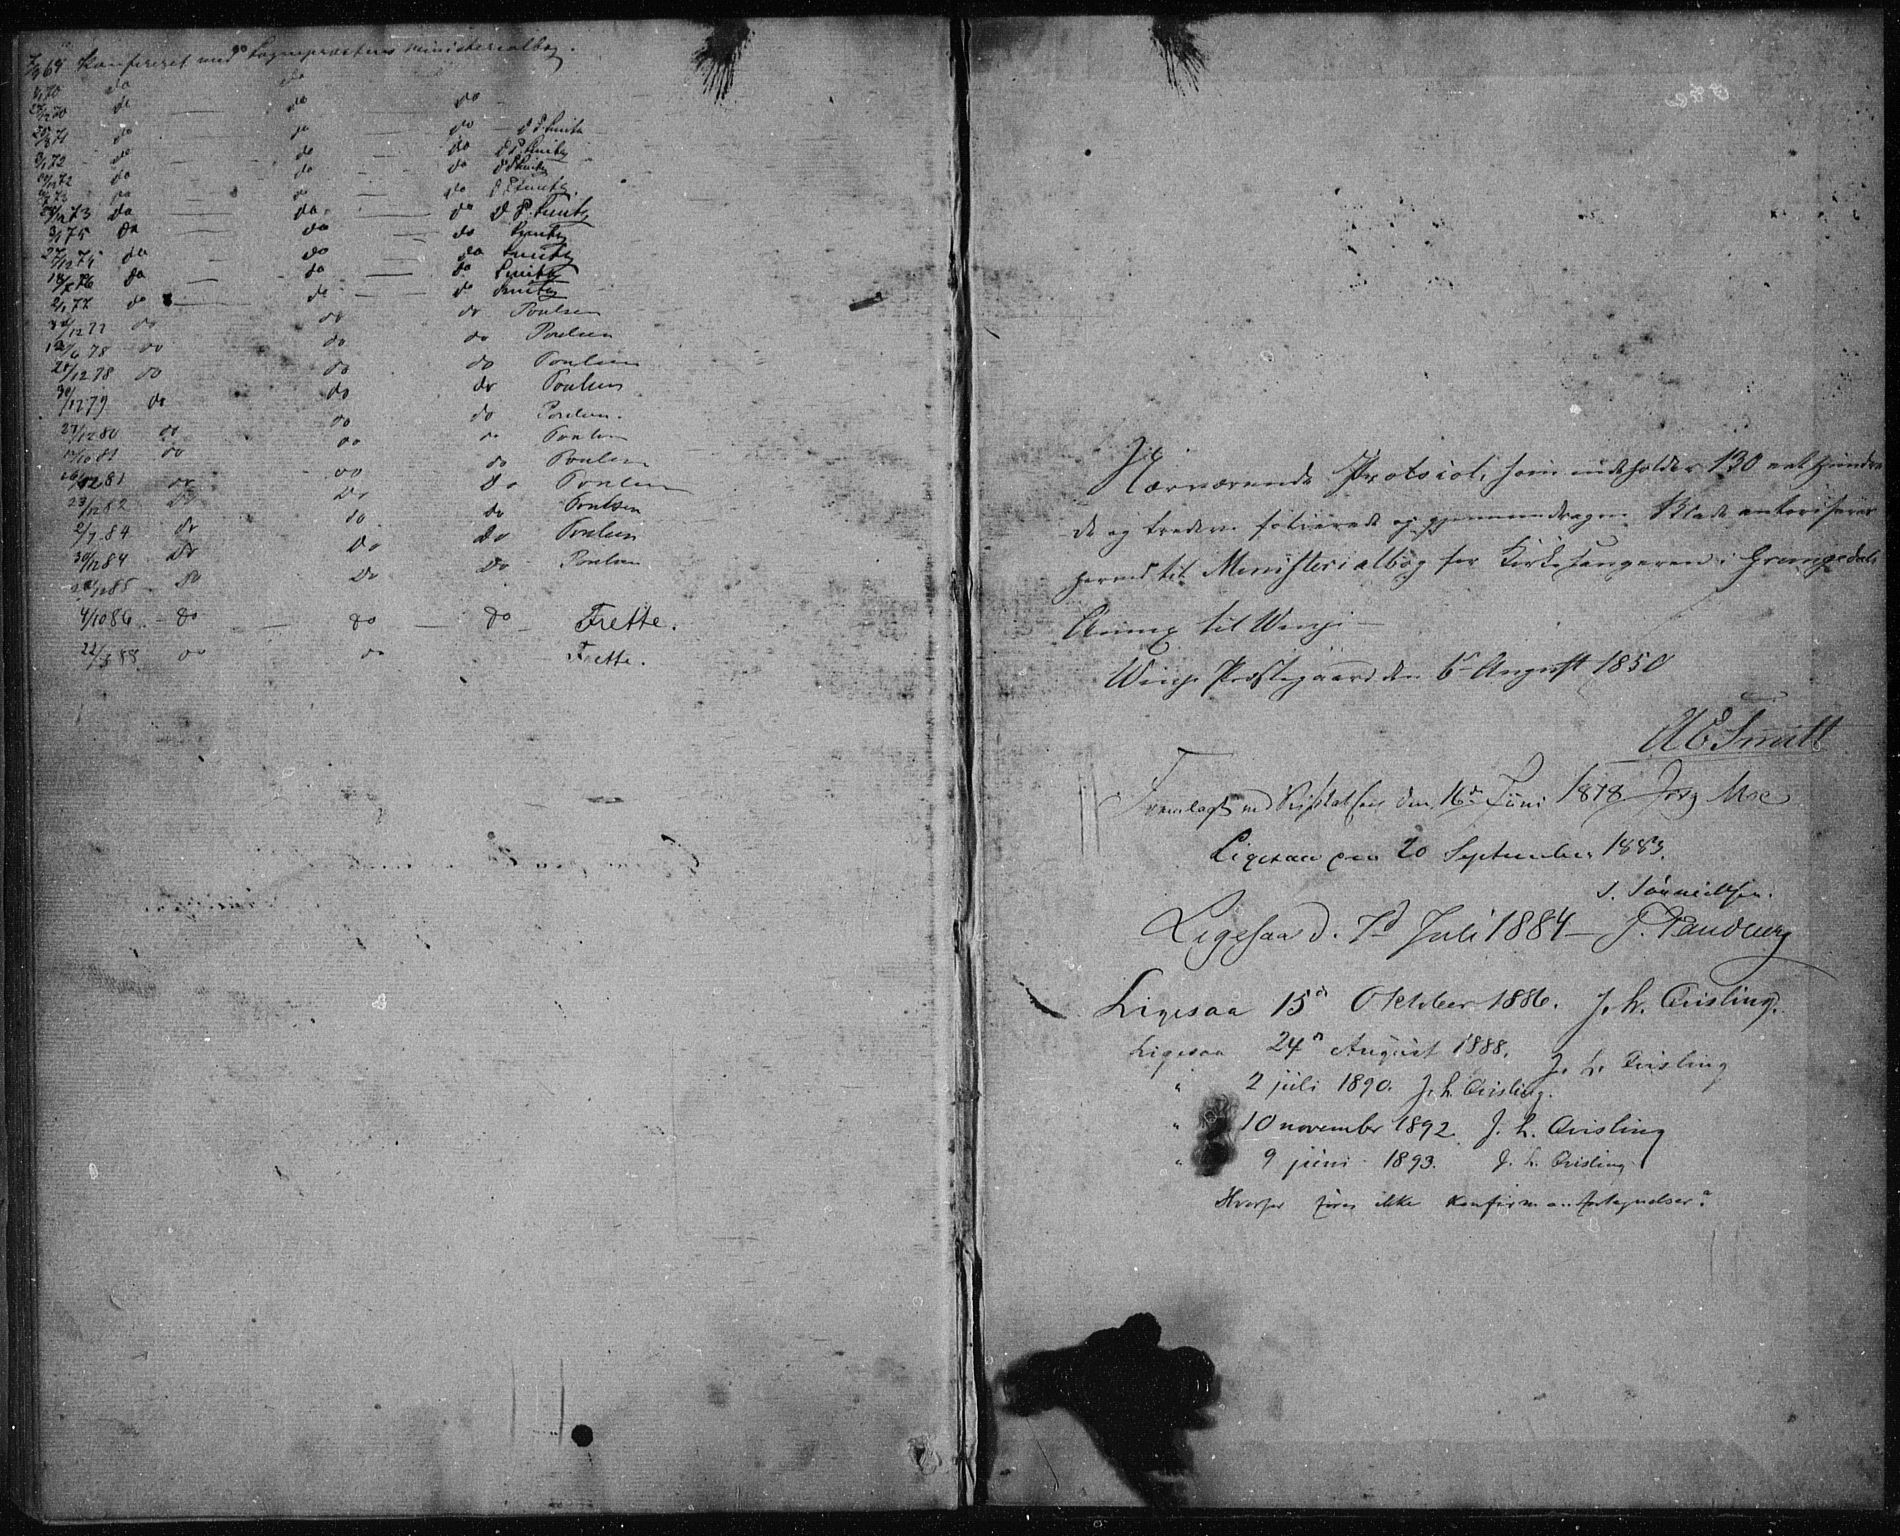 7/9 69 Konfereret med Sognepræstens ministerialbog.
3/1 70 do do
27/12 70 do do do
25/8 71 do do do Smith
3/1 72 do do do Smith
30/12 72 do do do Smith
73 do do do Smith
29/12 73 do do do Smith
3/1 75 do do do Smith
27/12 75 do do do Smith
76 do do do Smith
2/1 77 do do do Smith
30/12 77 do do do Poulsen
12/6 78 do do do Poulsen
28/12 78 do do do Poulsen
30/12 79 do do do Poulsen
27/12 80 do do do Poulsen
17/10 81 do do do Poulsen
16/12 81 do do do Poulsen
23/12 82 do do do Poulsen
2/7 84 do do do Poulsen
30/12 84 do do do Poulsen
28/12 85 do do do Poulsen
4/10 86 do do do Frette.
22/3 88 do do Frette.
Nærværende Protocol, som indeholder 130 eet Hundre-
de og tredive folierede og gjennemdragne Blade autoriseres
herved til Ministerialbog for Kirkesangeren i Grungedals
Annex til Winje
Winje Præstegaard den 6 August 1850
Smith
Fremlagt ved Visitatsen den 16de Juni 1878 Jørg Moe
Ligesaa den 20 September 1883.
J. Tønnessen.
Ligesaa d. 7d Juli 1884 J. Sandberg
Ligesaa 15de Oktober 1886. J. L. Qvisling.
Ligesaa 24de August 1888. J. L. Qvisling
" 2 juli 1890. J. L. Qvisling.
" 10 november 1892. J. L. Qvisling
" 9 juni 1893. J. L. Qvisling
Hvorfor føres ikke konfirmantfortegnelser?